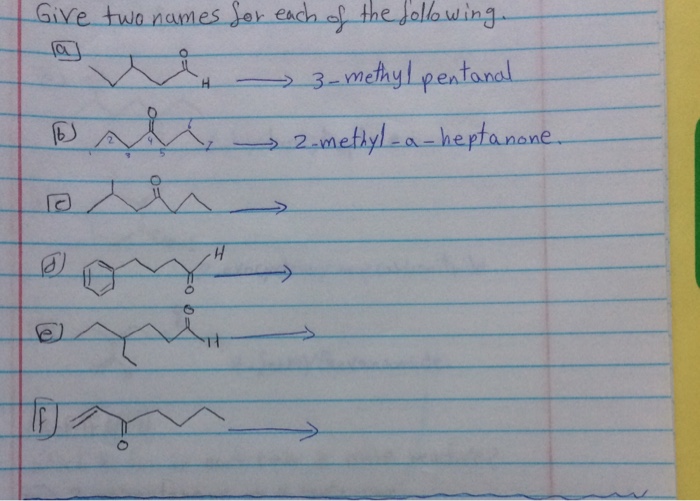 Give two names for each of the following.
(a) O H → 3-methyl pentanal
(b) O 1 2 3 4 5 6 7 → 2-methyl-a-heptanone.
(c) O →
(d) H O →
(e) O H →
(f) O →